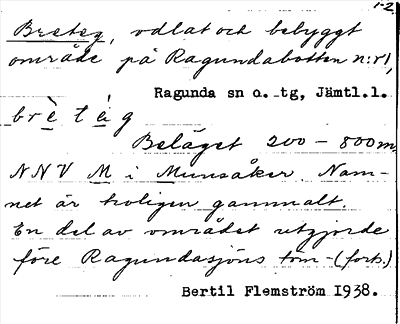 1-2.
Breteg, odlat och bebyggt
område på Ragundabotten n:r 1,
Ragunda sn o. tg, Jämtl.l.
brè tàg
Beläget 200 – 800 m.
NNV M i Munsåker. Nam-
net är troligen gammalt.
En del av området utgjorde
före Ragundasjöns töm-(forts.)
Bertil Flemström 1938.